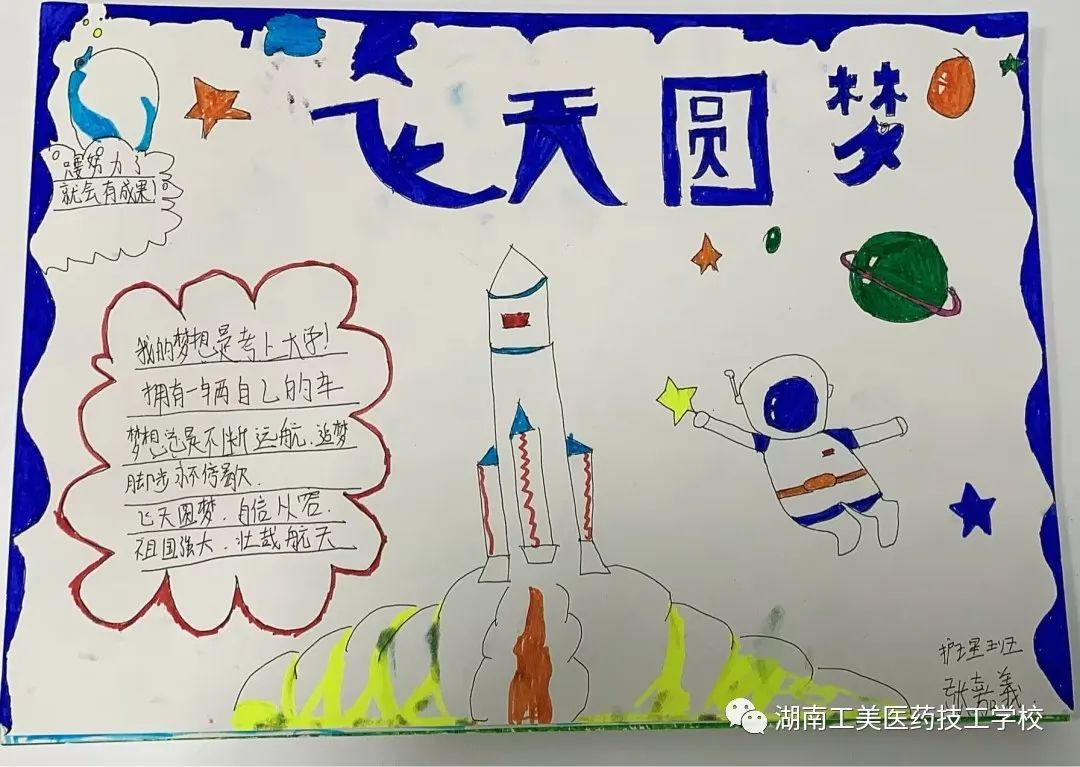 飞天圆梦
只要努力了
就会有成果!
我的梦想是考上大学!
拥有一辆自己的车
梦想总是不断远航.追梦
脚步永不停歇.
飞天圆梦.自信从容.
祖国强大.壮哉航天
护理班
张嘉義
湖南工美医药技工学校